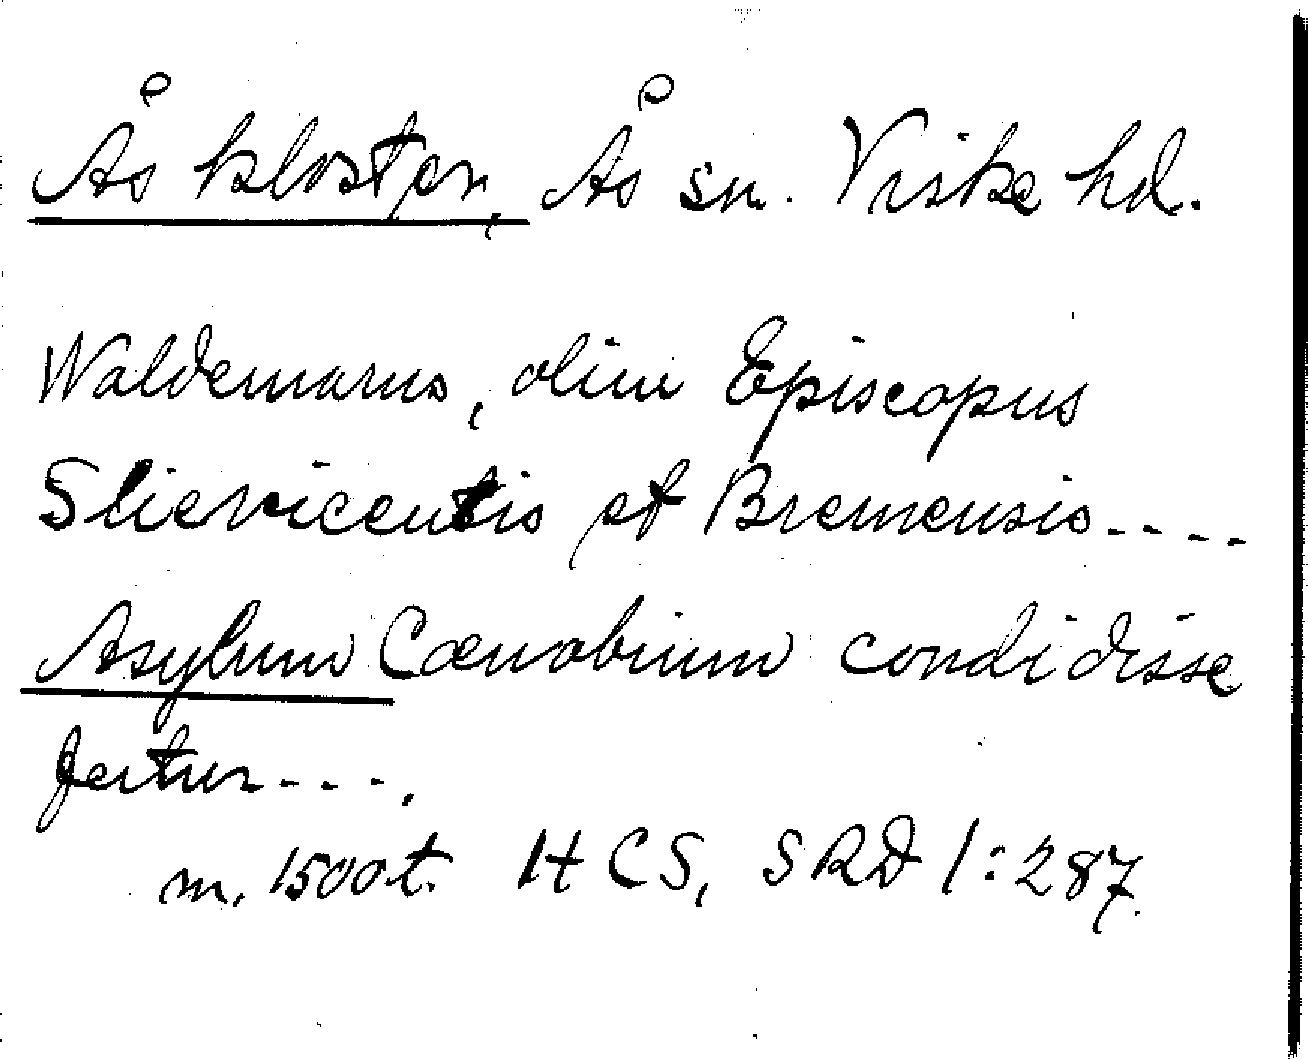 Ås kloster, Ås sn. Viske hd.
Waldemarus, olim Episcopus
Slievicentis et Bremensis----
Asylum Cœnobium condidisse
fertur---.
m. 1500t. HCS, SRD 1:287.